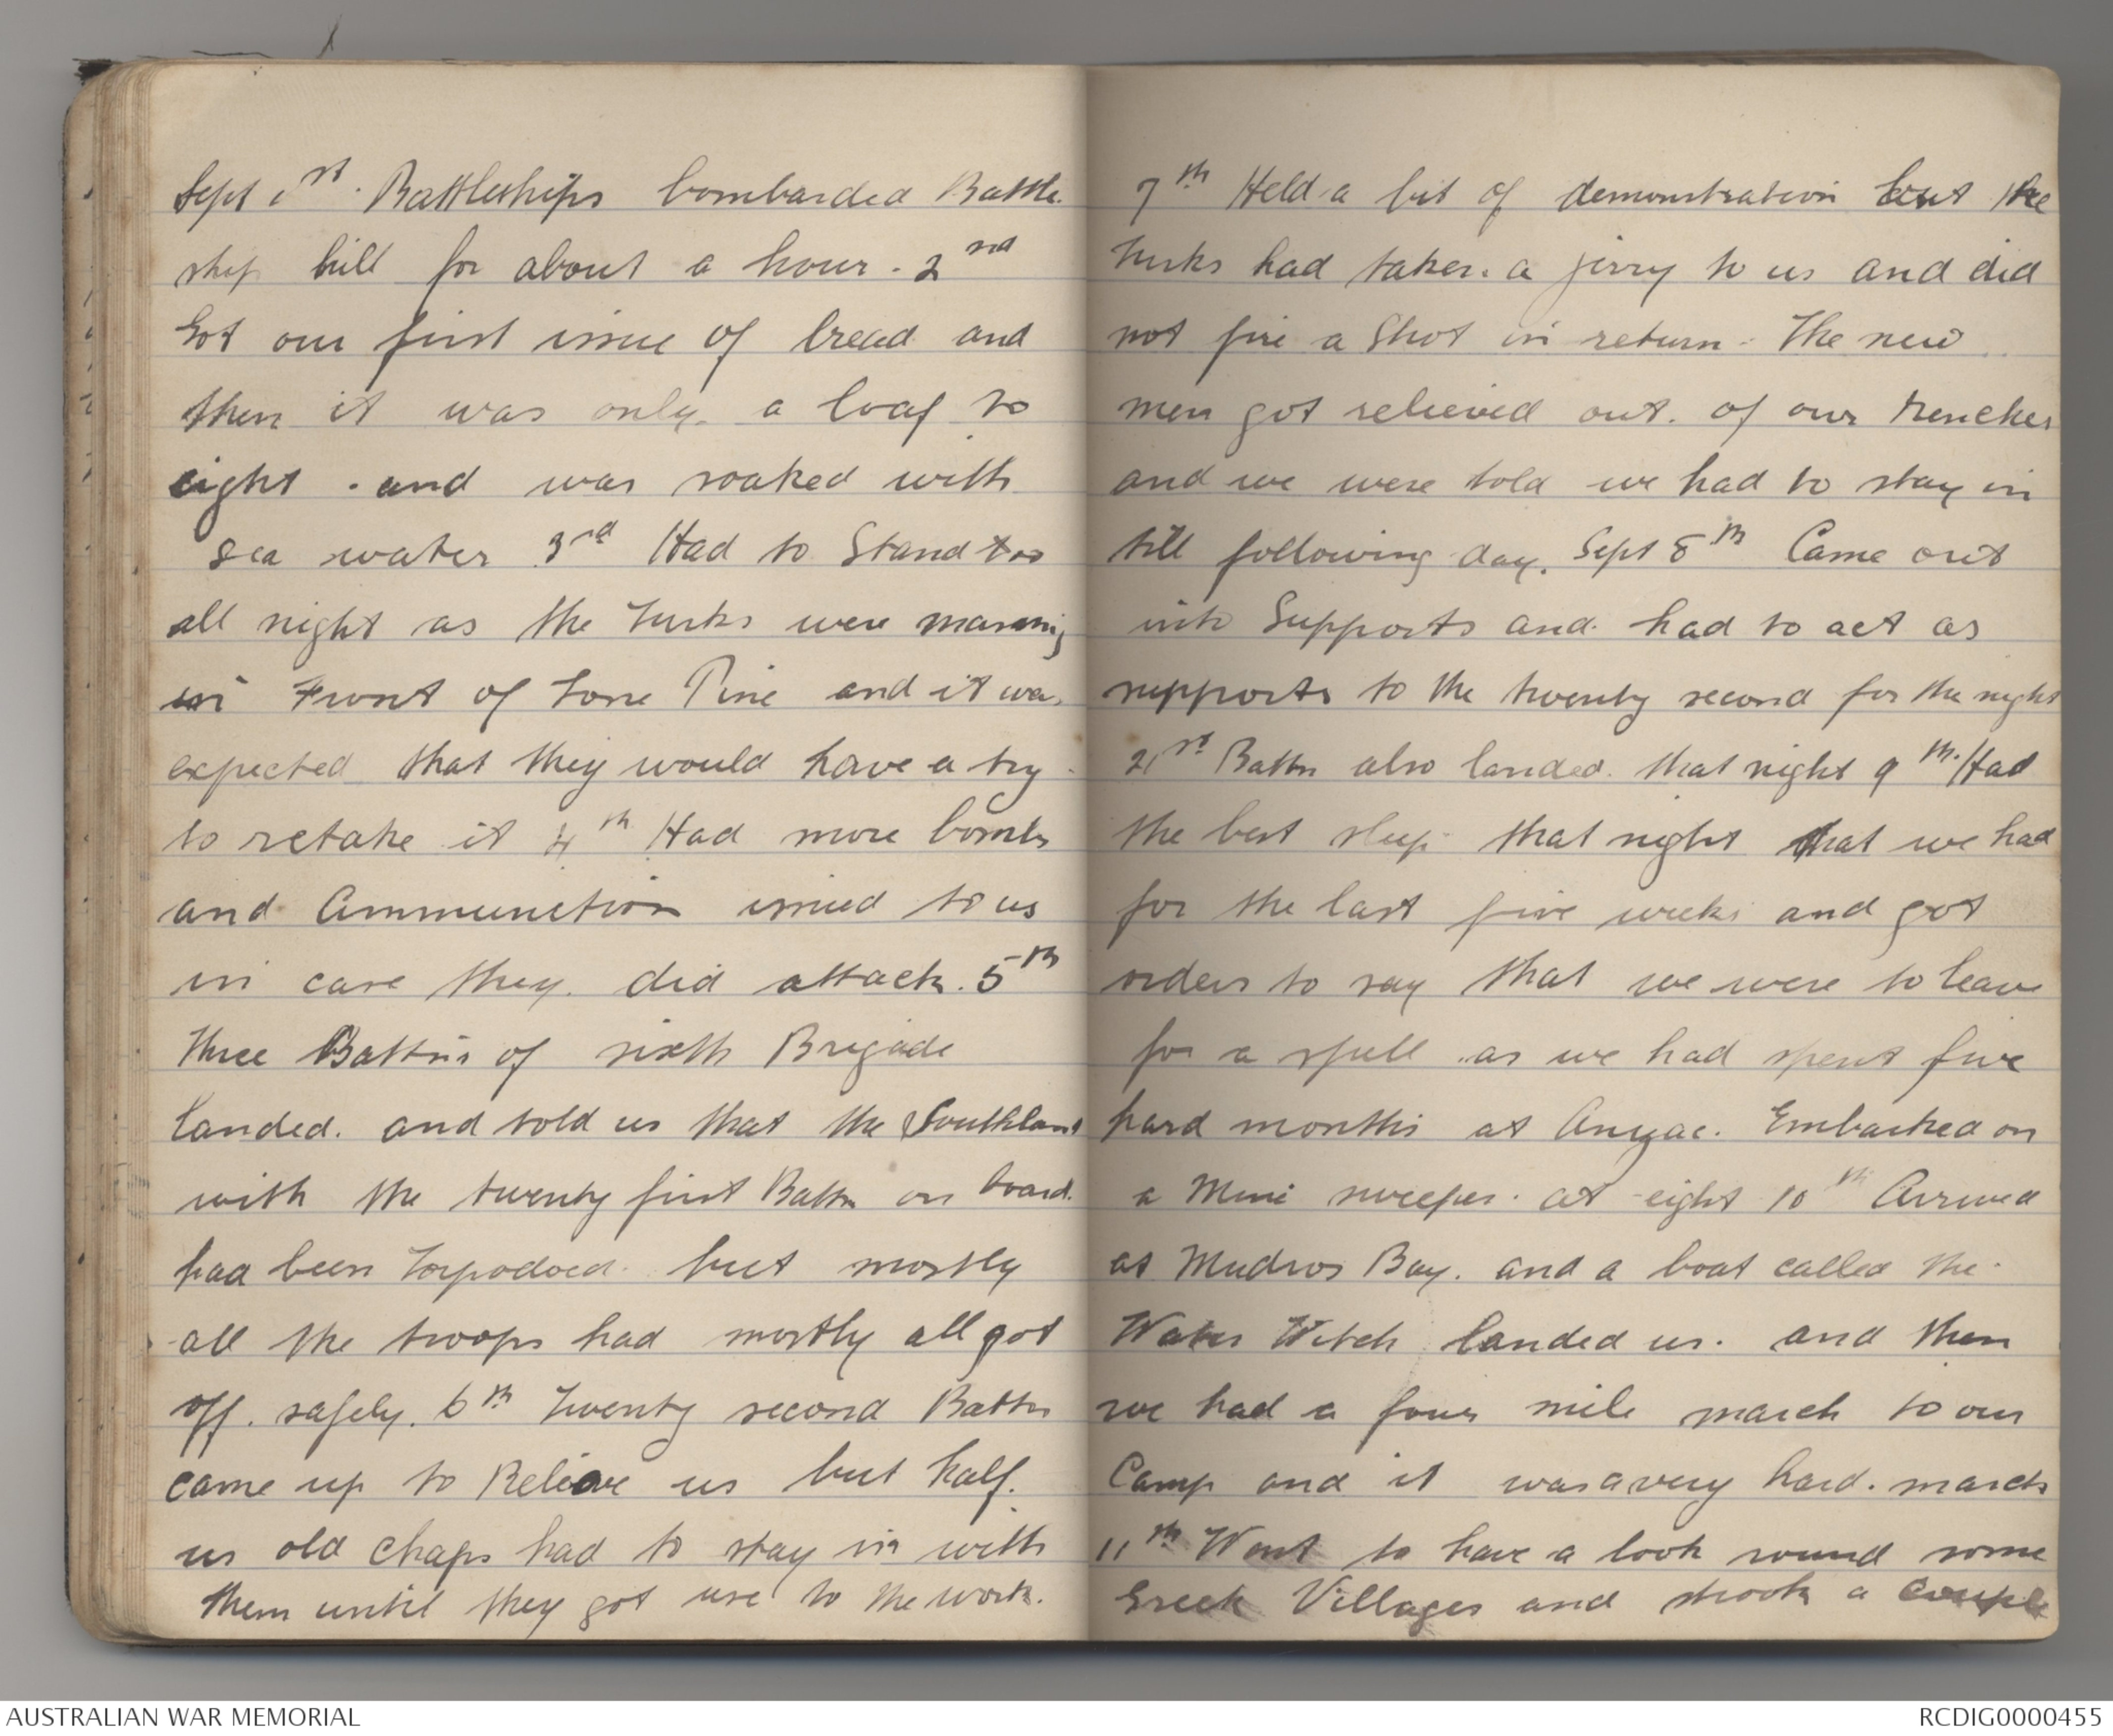 Sept 1st. Battleships bombarded Battle
ship hill for about a hour. 2nd
Got our first issue of bread and
then it was only a loaf to
eight. and was soaked with
sea water 3rd Had to Stand too
all night as the Turks were massing
in Front of Lone Pine and it was
expected that they would have a try
to retake it 4th Had more bombs
and Ammunetion issued to us
in case they did attack. 5th
three Battns of sixth Brigade
landed. and told us that the Southland
with the twenty first Battn on board.
had been Torpodoed. but mostly
all the troops had mostly all got
off. safely. 6th Twenty second Battn
came up to Relieve us but half.
us old chaps had to stay in with
them until they got use to the work.
7th Held a bit of demonstration but the
Turks had taken. a jerry to us and did
not fire a Shot in return. The new
men got relieved out. of our trenches
and we were told we had to stay in
till following day. Sept 8th Came out
into Supports and had to act as
supports to the twenty second for the night
21st Battn also landed. that night 9th. Had
the best sleep that night that we had
for the last five weeks and got
orders to say that we were to leave
for a spell. as we had spent five
hard months at Anzac. Embarked on
a Mine sweeper. at eight 10th Arrived
at Mudros Bay. and a boat called the
Water Witch landed us. and then
we had a four mile march to our
Camp and it was a very hard. march
11th Went to have a look round some
Greek Villages and shook a couple
AUSTRALIAN WAR MEMORIAL
RCDIG0000455